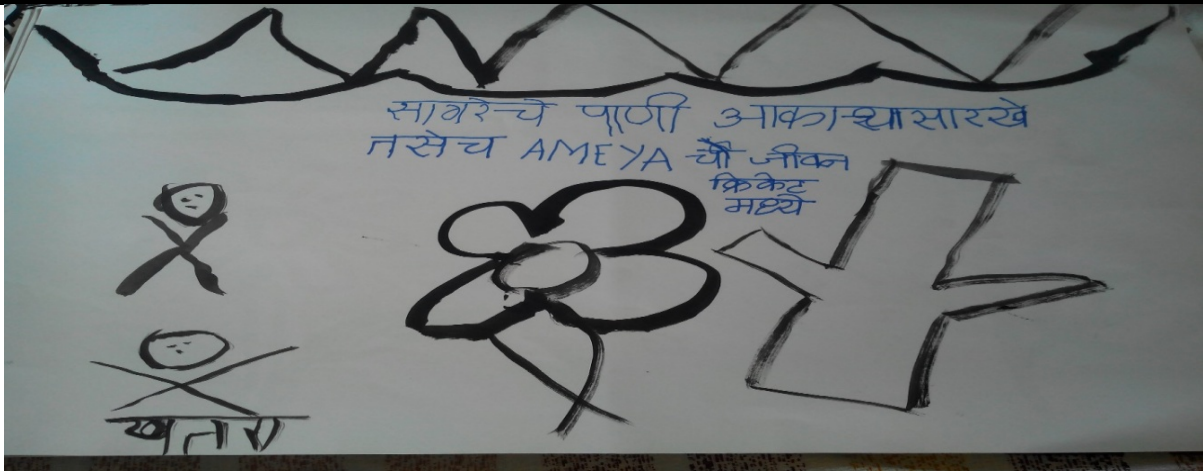 सागरेचे पाणी आकाश्यासारखे
तसेच AMEYA चौ जीवन
क्रिकेट
मध्ये
खतरा